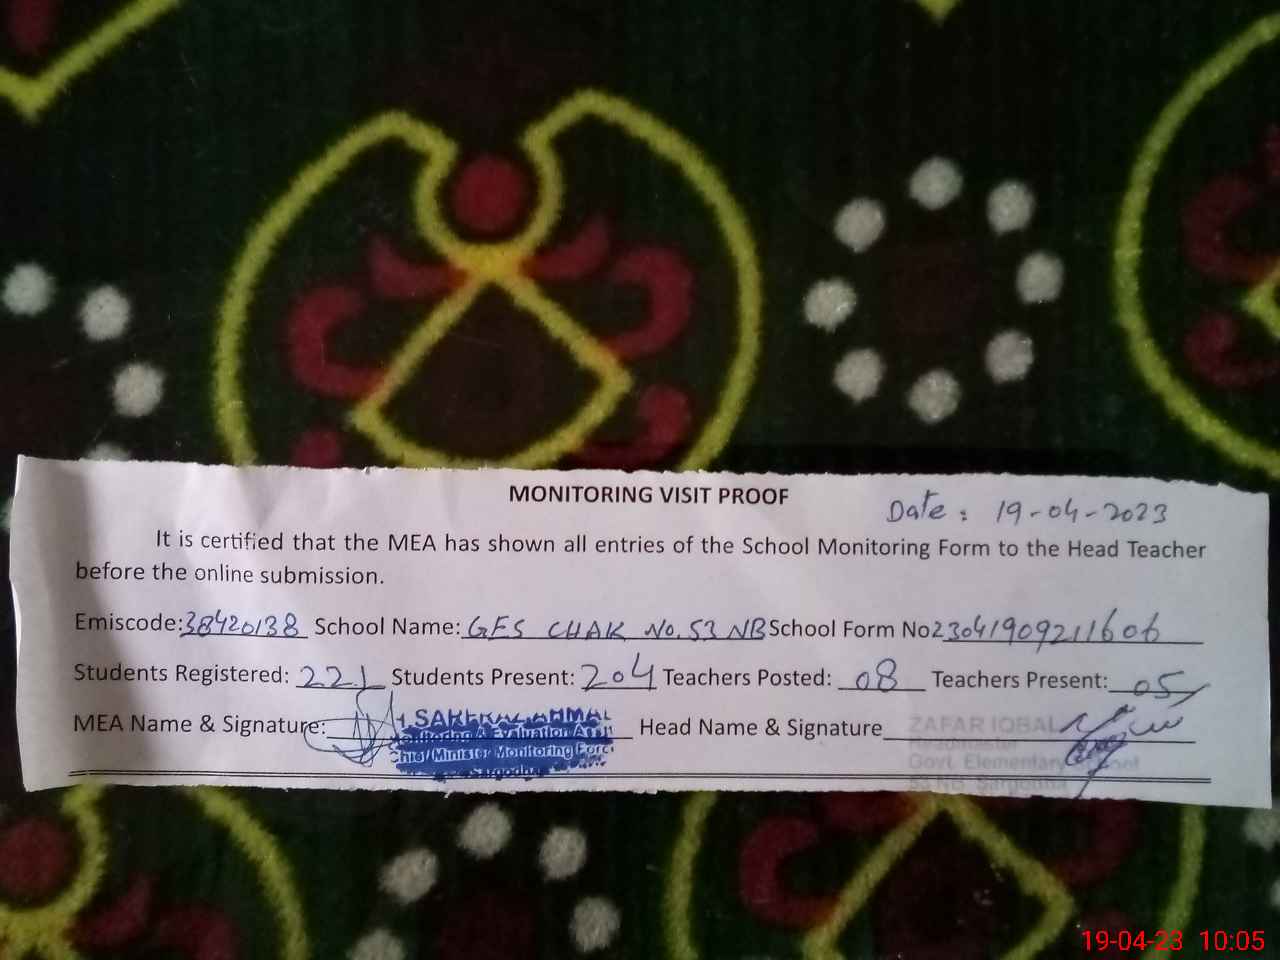 MONITORING VISIT PROOF
Date: 19-04-2023
It is certified that the MEA has shown all entries of the School Monitoring Form to the Head Teacher
before the online submission.
Emiscode: 38420138 School Name: GES CHAK No. 53 NB School Form No 23041909211606
Students Registered: 221 Students Present: 204 Teachers Posted: 08 Teachers Present: 05
MEA Name & Signature: Head Name & Signature ZAFAR IQBAL
Monitoring & Evaluation Headmaster
Chief Minister Monitoring Force Govt. Elementary School
Sargodha 53 NB, Sargodha
19-04-23 10:05